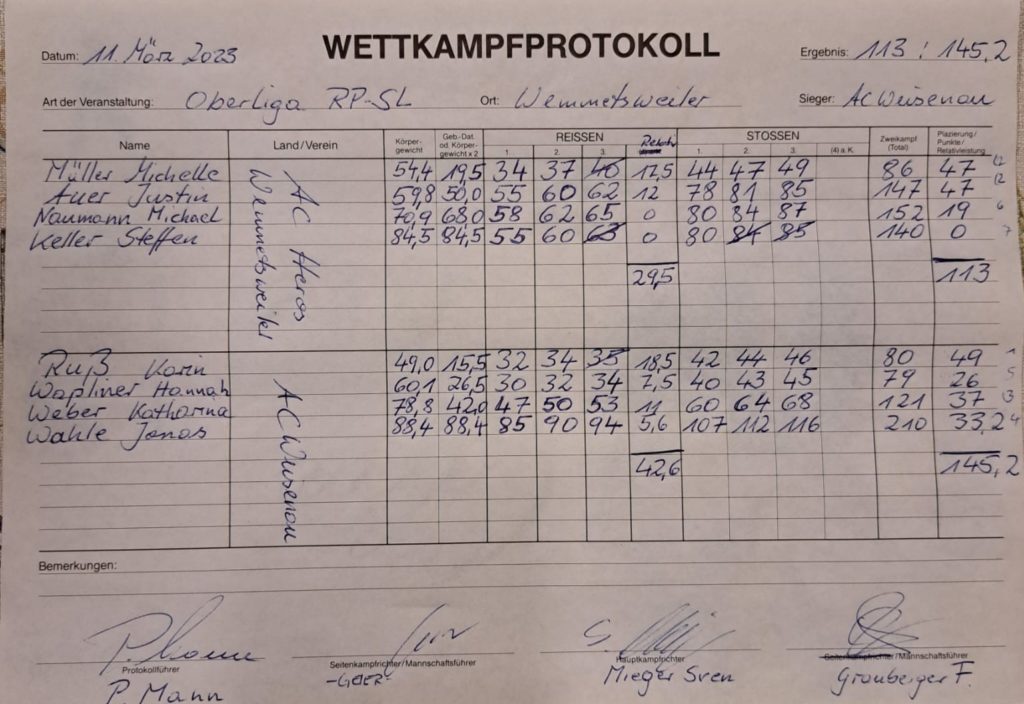 WETTKAMPFPROTOKOLL
Datum: 11. März 2023 Ergebnis: 113 : 145,2
Art der Veranstaltung: Oberliga RP-SL Ort: Wemmetsweiler Sieger: AC Weisenau
Name Land/Verein Körper-gewicht Geb.-Dat. od. Körper-gewicht x 2 REISSEN 1. 2. 3. Relativ STOSSEN 1. 2. 3. (4) a. K. Zweikampf (Total) Plazierung/Punkte/Relativleistung
AC Heros Wemmetsweiler
Müller Michelle 54,4 19,5 34 37 40 17,5 44 47 49 86 47
Auer Justin 59,8 50,0 55 60 62 12 78 81 85 147 47
Naumann Michael 70,9 68,0 58 62 65 0 80 84 87 152 19 6
Keller Steffen 84,5 84,5 55 60 63 0 80 84 85 140 0 7
29,5 113
AC Weisenau
Ruß Karin 49,0 15,5 32 34 35 18,5 42 44 46 80 49 1
Wapliner Hannah 60,1 26,5 30 32 34 7,5 40 43 45 79 26 5
Weber Katharina 78,8 42,0 47 50 53 11 60 64 68 121 37 3
Wahle Jonas 88,4 88,4 85 90 94 5,6 107 112 116 210 33,2 4
42,6 145,2
Bemerkungen:
Protokollführer Seitenkampfrichter/Mannschaftsführer Hauptkampfrichter Seitenkampfrichter/Mannschaftsführer
P. Mann -GEIER- Mieger Sven Grauberger F.